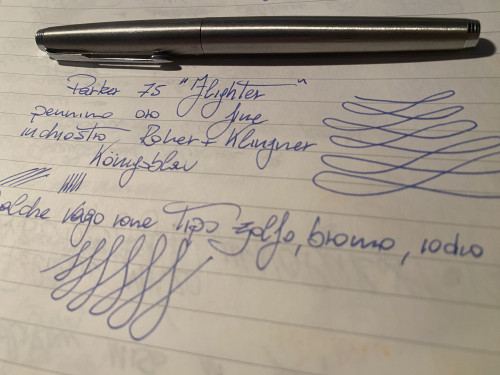 Parker 75 "Flighter"
pennino oro fine
inchiostro Roher + Klingner
Königsblau
vago ione Tipo zolfo, bromo, iodio